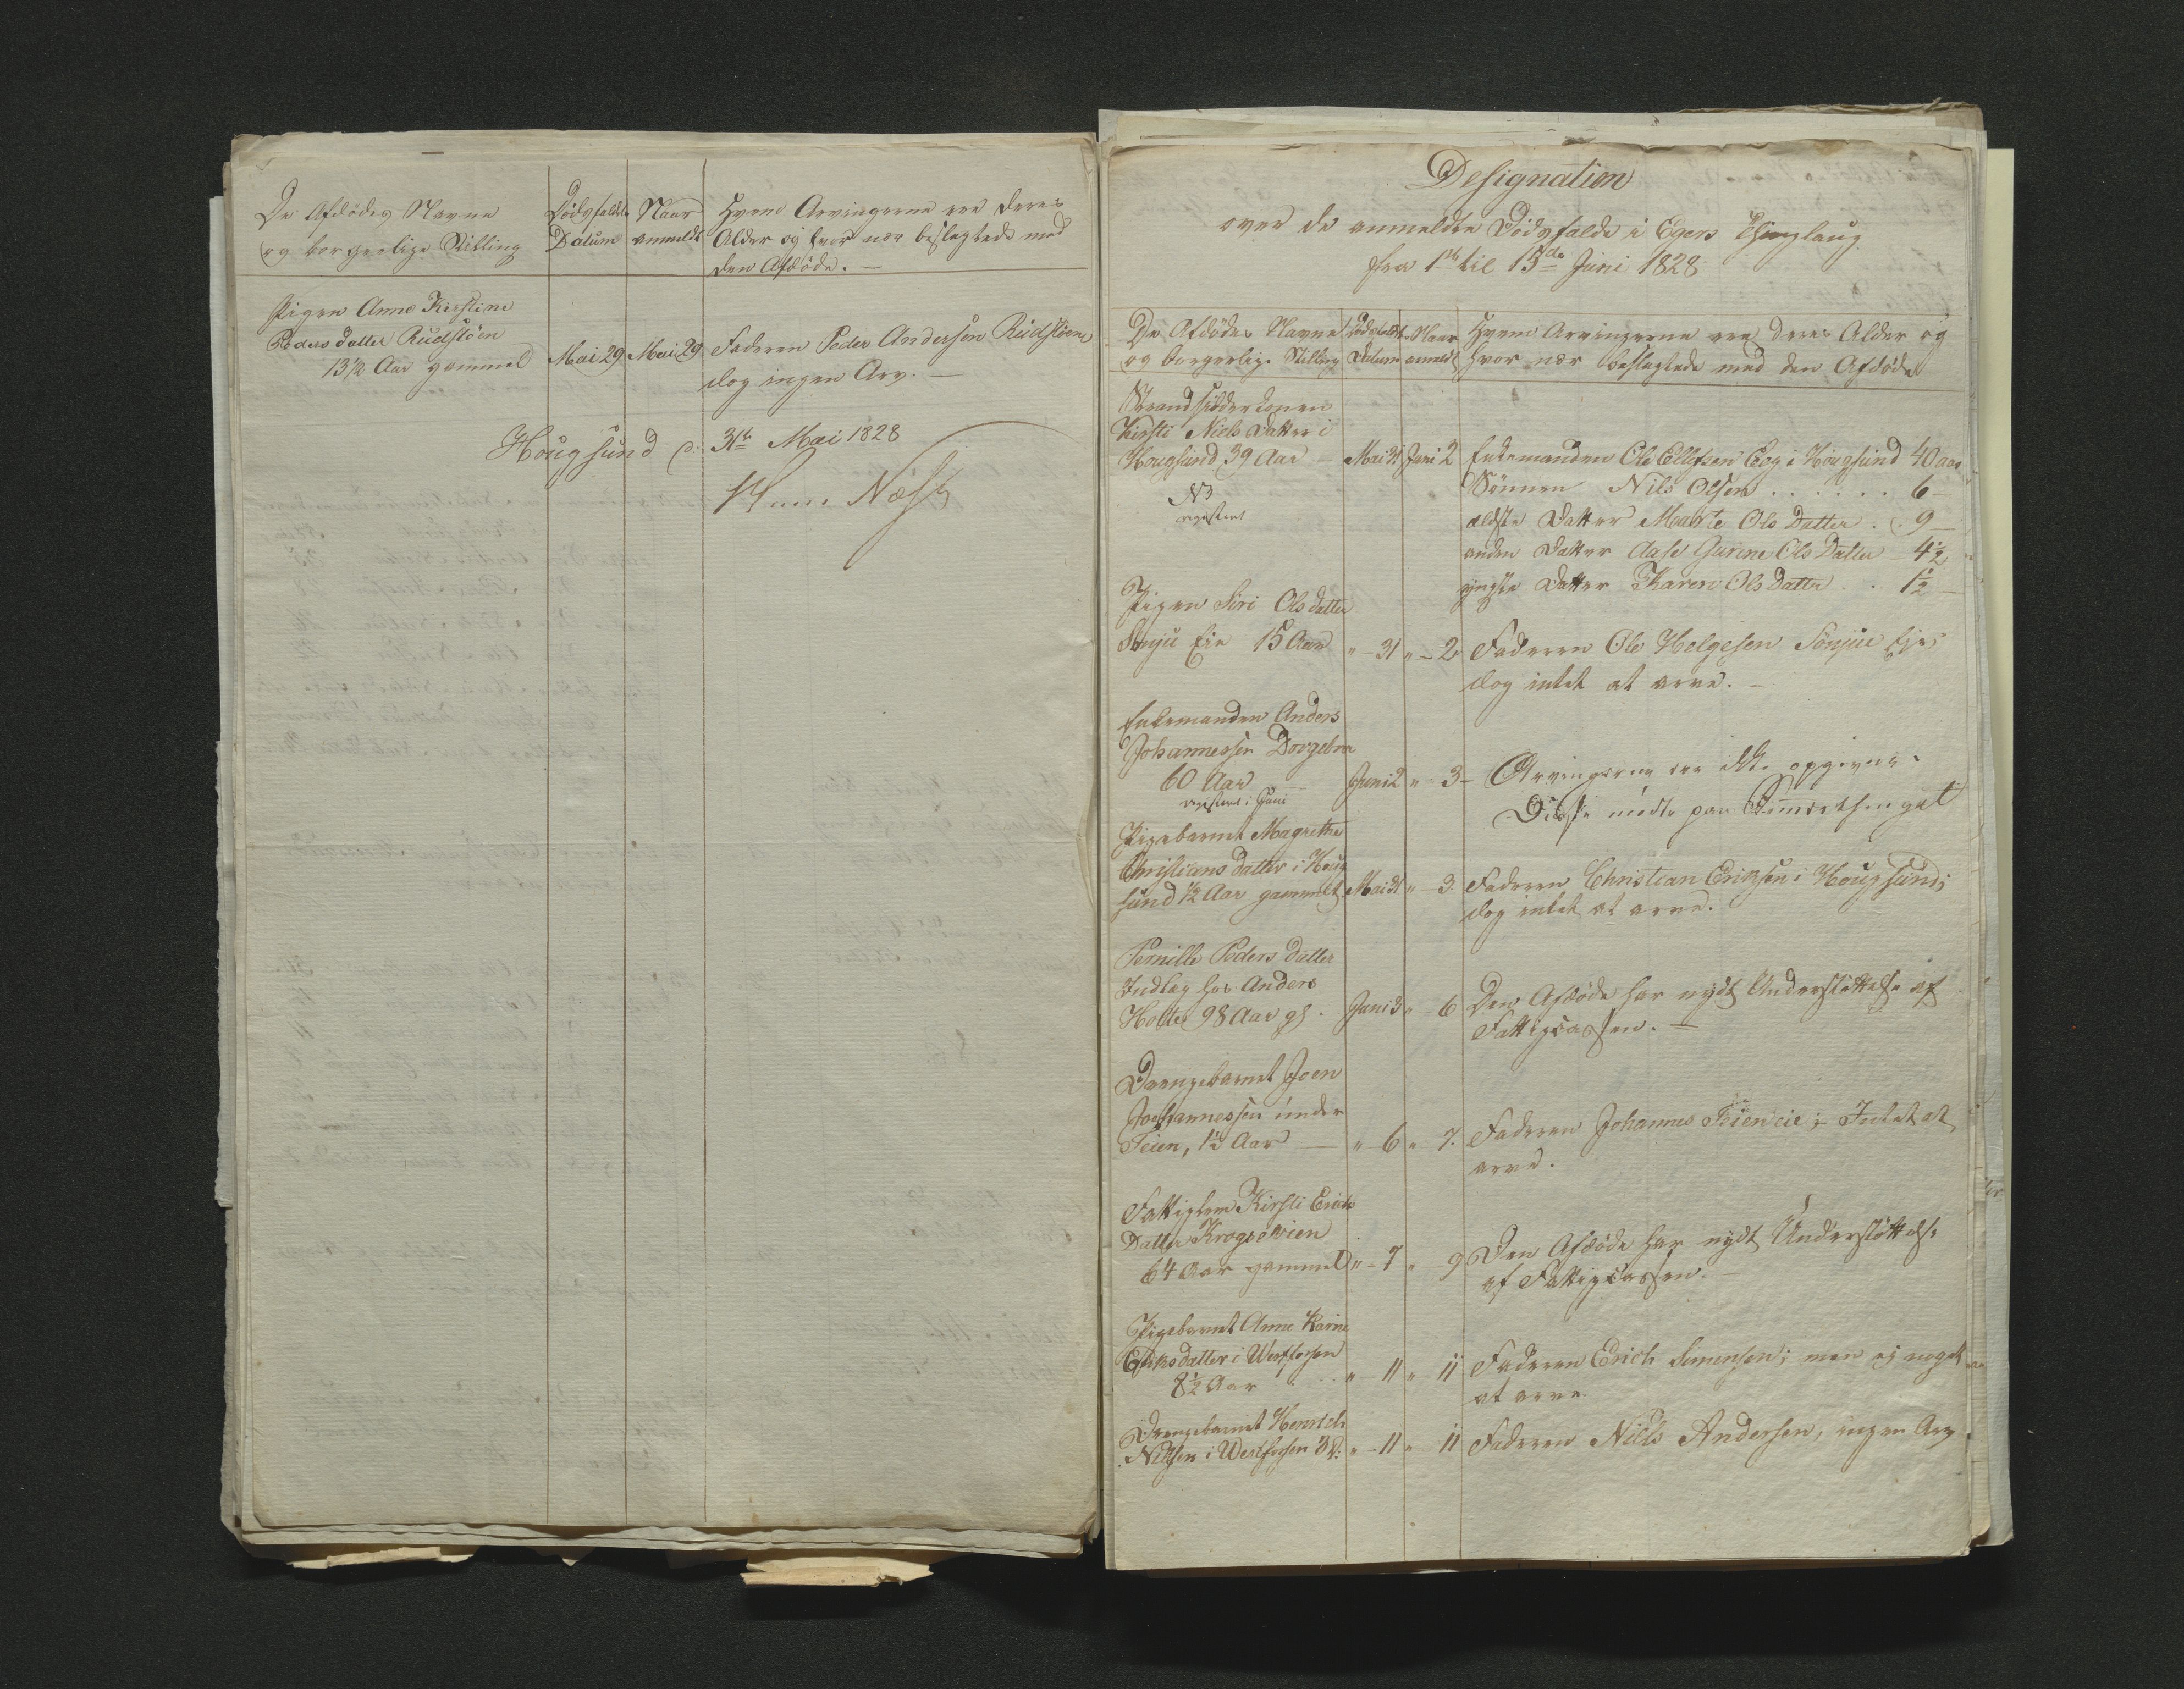 De Afdødes Navne
og borgerlige Stilling
Dødsfaldets
Datum
Naar
anmeldt
Hvem Arvingerne ere deres
Alder og hvor nær beslegtede med
den Afdøde. —
Pigen Anne Kirstine
Peders datter Rudstøen
13½ Aar gammel
Mai 29
Mai 29
Faderen Peder Andersen Rudstøen,
dog ingen Arv. —
Hougsund d: 31te Mai 1828
Næss
Designation
over de anmeldte Dødsfalde i Egers Thinglaug
fra 1ste til 15de Juni 1828
De Afdødes Navne
og borgerlige Stilling
Dødsfaldets
Datum
Naar
anmeldt
Hvem Arvingerne ere, deres Alder og
hvor nær beslegtede med den Afdøde
Strandsidderkonen
Kirsti Niels Datter i
Hougsund 39 Aar
Mai 31
Juni 2
Enkemanden Ole Ellefsen Eeg i Hougsund 40 aar
Sønnen Nils Olsen . . . . . . 6 —
ældste Datter Marte Ols Datter . . 9 —
anden Datter Aase Gurine Ols Datter 4½
yngste Datter Karen Ols Datter . . 1½ —
registeret
Pigen Siri Ols datter
Sønju Eie 15 Aar
" — 31 " — 2
Faderen Ole Helgesen Sønjue Eje;
dog intet at arve. —
Enkemanden Anders
Johannessen Dorgebra
60 Aar
registeret i Juni
Juni 2 " 3 —
Arvingerne ere ikke opgivne.
Disse mødte paa
Pigebarnet Magrethe
Christians datter i Houg
sund ½ Aar gammelt
Mai 31 " — 3
Faderen Christian Eriksen i Hougsund;
dog intet at arve.
Pernille Peders datter
Indlæg hos Anders
Holte 98 Aar gl.
Juni 3 " 6
Den Afdøde har nydt Understøttelse af
Fattigcassen. —
Drengebarnet Joen
Johannessen under
Teien, 1½ Aar —
" — 6 " 7.
Faderen Johannes Teieneie; Intet at
arve.
Fattiglem Kirsti Erich
Datter Krogsetvien
64 Aar gammel
" — 7 " 9
Den Afdøde har nydt Understøttelse
af Fattigcassen. —
Pigebarnet Anne Karine
Eriksdatter i Westfossen
8½ Aar . .
" — 11 " 11
Faderen Erich Simensen; men ej noget
at arve.
Drengebarnet Henrich
Nilsen i Westfossen 3
" — 11 " 11
Faderen Niels Andersen, ingen Arv